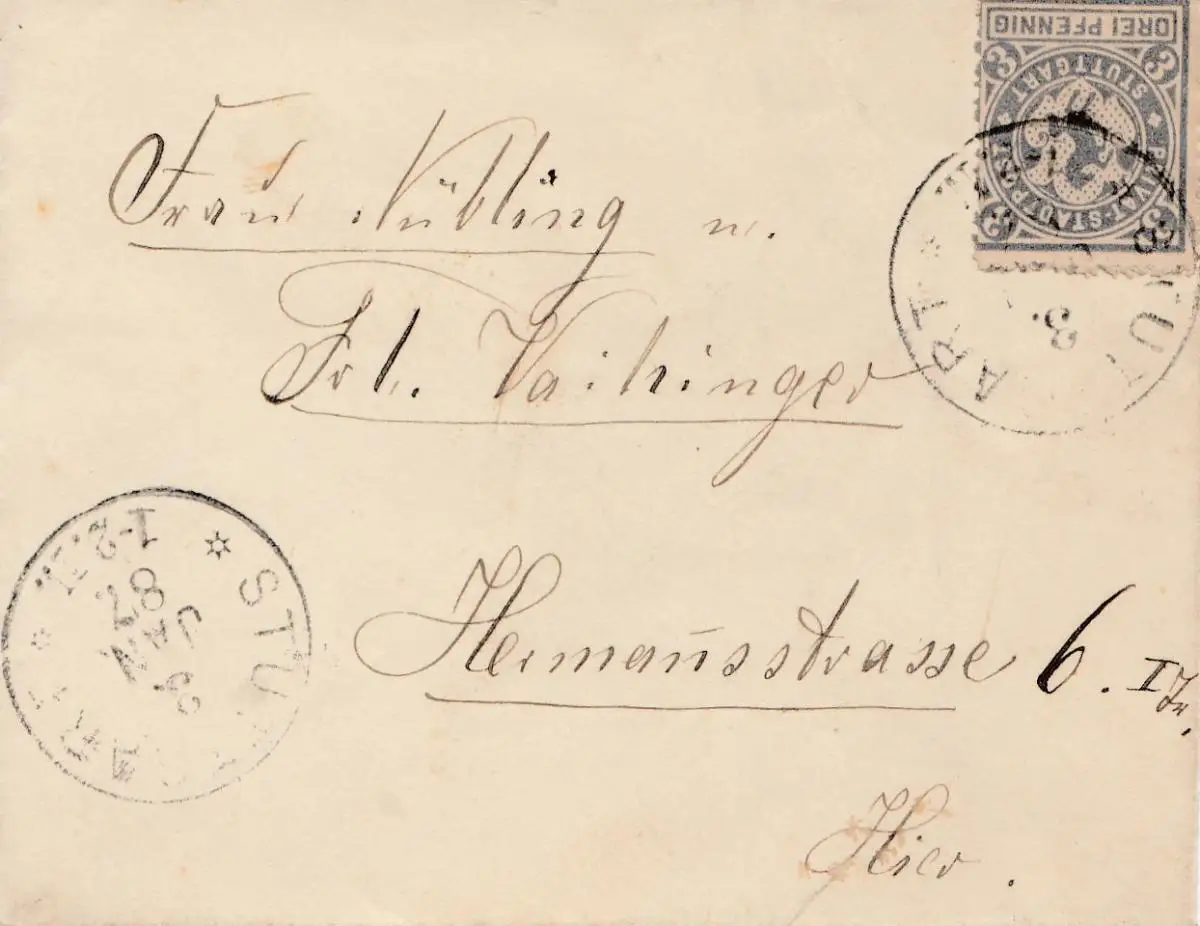 DREI PFENNIG
3 3
PRIVAT-STADTPOST * STUTTGART *
3 3
Frau Nübling u.
Frl. Vaihinger
Hermannsstrasse 6. I Tr.
Hier.
STUTTGART
3.
STUTTGART
3
JAN
87
1-2 N.